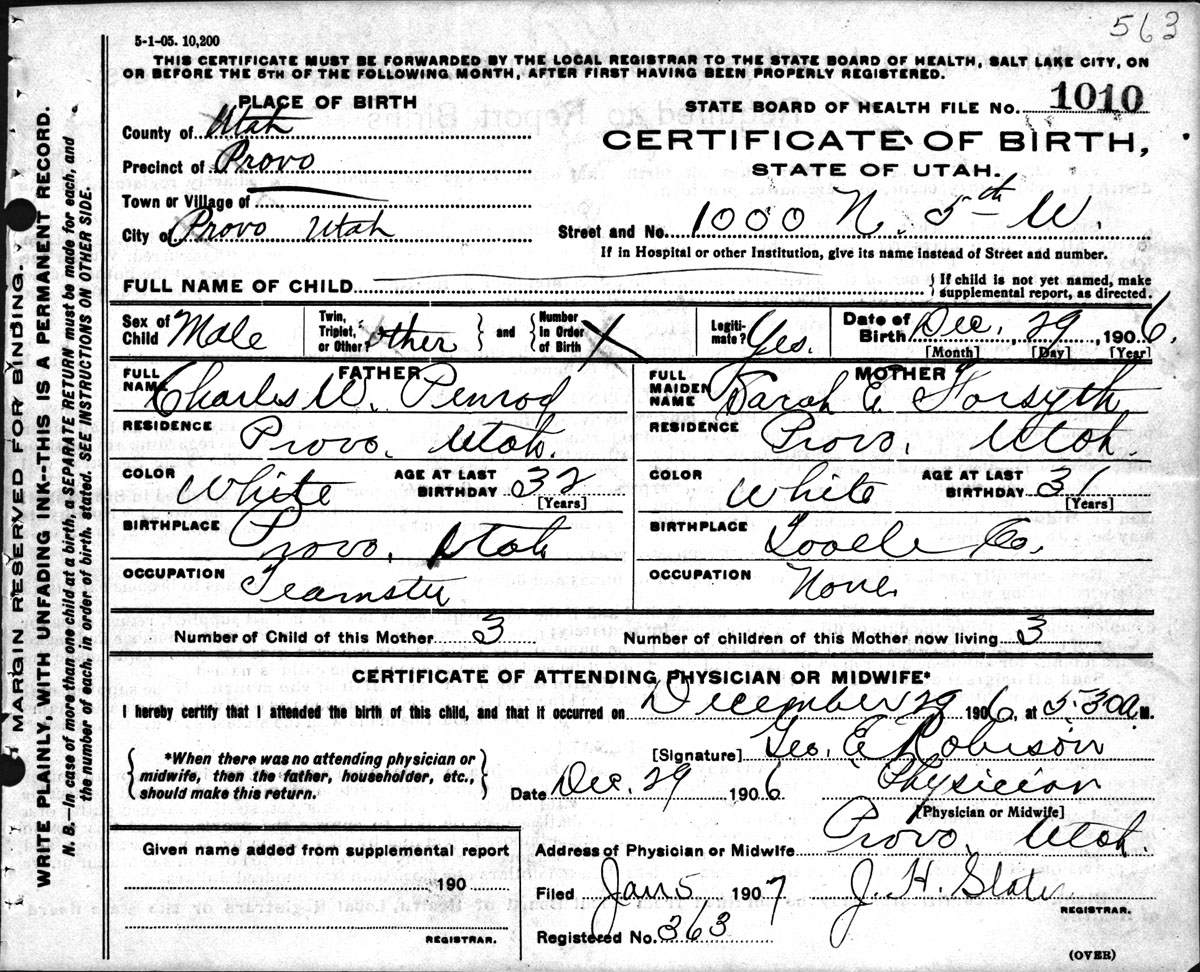 563
5-1-05. 10,200
THIS CERTIFICATE MUST BE FORWARDED BY THE LOCAL REGISTRAR TO THE STATE BOARD OF HEALTH, SALT LAKE CITY, ON
OR BEFORE THE 5TH OF THE FOLLOWING MONTH, AFTER FIRST HAVING BEEN PROPERLY REGISTERED.
PLACE OF BIRTH
STATE BOARD OF HEALTH FILE No. 1010
County of Utah
CERTIFICATE OF BIRTH,
Precinct of Provo
STATE OF UTAH.
Town or Village of
City of Provo Utah
Street and No. 1000 N. 5th W.
If in Hospital or other Institution, give its name instead of Street and number.
FULL NAME OF CHILD
{ If child is not yet named, make
supplemental report, as directed.
Sex of Child Male
Twin, Triplet, or Other? other } and { Number in Order of Birth X
Legitimate? Yes.
Date of Birth Dec. 29, 1906
[Month] [Day] [Year]
FATHER
FULL NAME Charles W. Penrod
RESIDENCE Provo. Utah.
COLOR White AGE AT LAST BIRTHDAY 32 [Years]
BIRTHPLACE Provo. Utah
OCCUPATION Teamster
MOTHER
FULL MAIDEN NAME Sarah E. Forsyth
RESIDENCE Provo. Utah.
COLOR White AGE AT LAST BIRTHDAY 31 [Years]
BIRTHPLACE Tooele Co.
OCCUPATION None.
Number of Child of this Mother 3 Number of children of this Mother now living 3
CERTIFICATE OF ATTENDING PHYSICIAN OR MIDWIFE*
I hereby certify that I attended the birth of this child, and that it occurred on December 29 1906, at 5:30 a. M.
{ *When there was no attending physician or
midwife, then the father, householder, etc.,
should make this return. }
[Signature] Geo. E. Robison
Date Dec. 29 1906 Physician
[Physician or Midwife]
Address of Physician or Midwife Provo, Utah.
Given name added from supplemental report
190
REGISTRAR.
Filed Jan 5 1907 J. H. Slater
REGISTRAR.
Registered No. 363
(OVER)
MARGIN RESERVED FOR BINDING.
WRITE PLAINLY, WITH UNFADING INK--THIS IS A PERMANENT RECORD.
N. B.—In case of more than one child at a birth, a SEPARATE RETURN must be made for each, and
the number of each, in order of birth, stated. SEE INSTRUCTIONS ON OTHER SIDE.